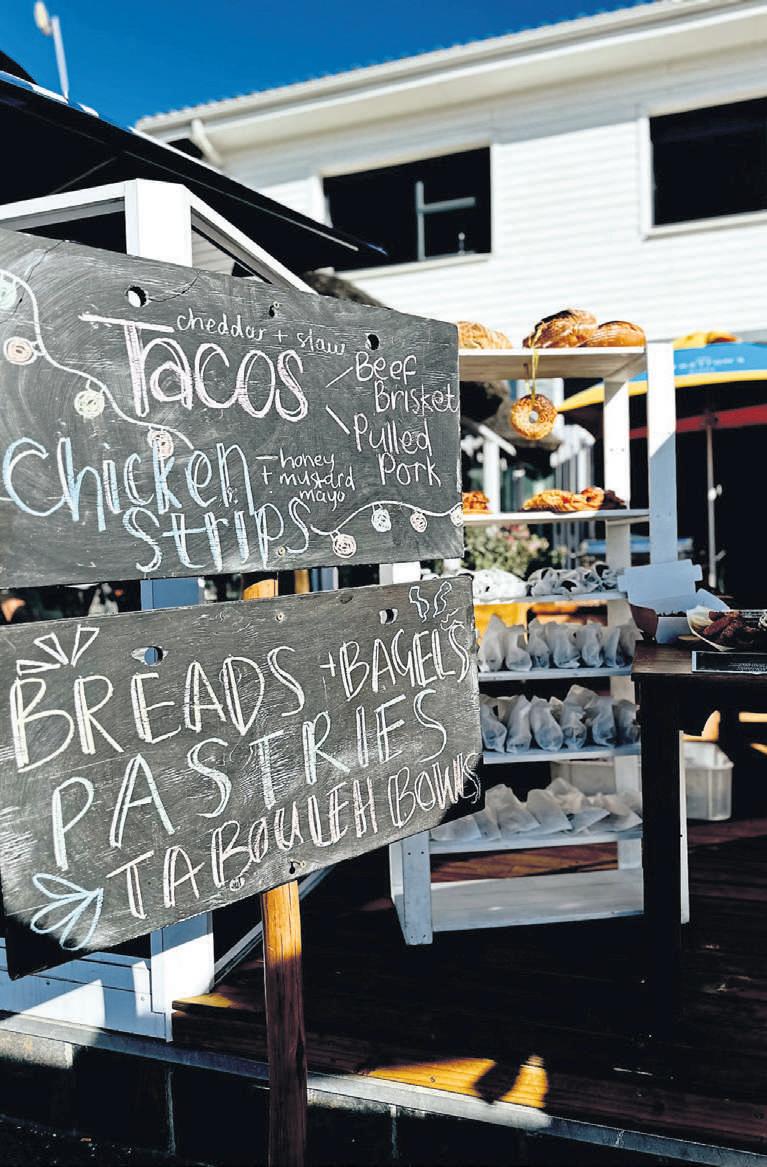 cheddar + slaw
Tacos
Beef
Brisket
Pulled
Pork
Chicken
Strips
honey
+ mustard
mayo
BREADS + BAGELS
PASTRIES
TABOULEH BOWLS